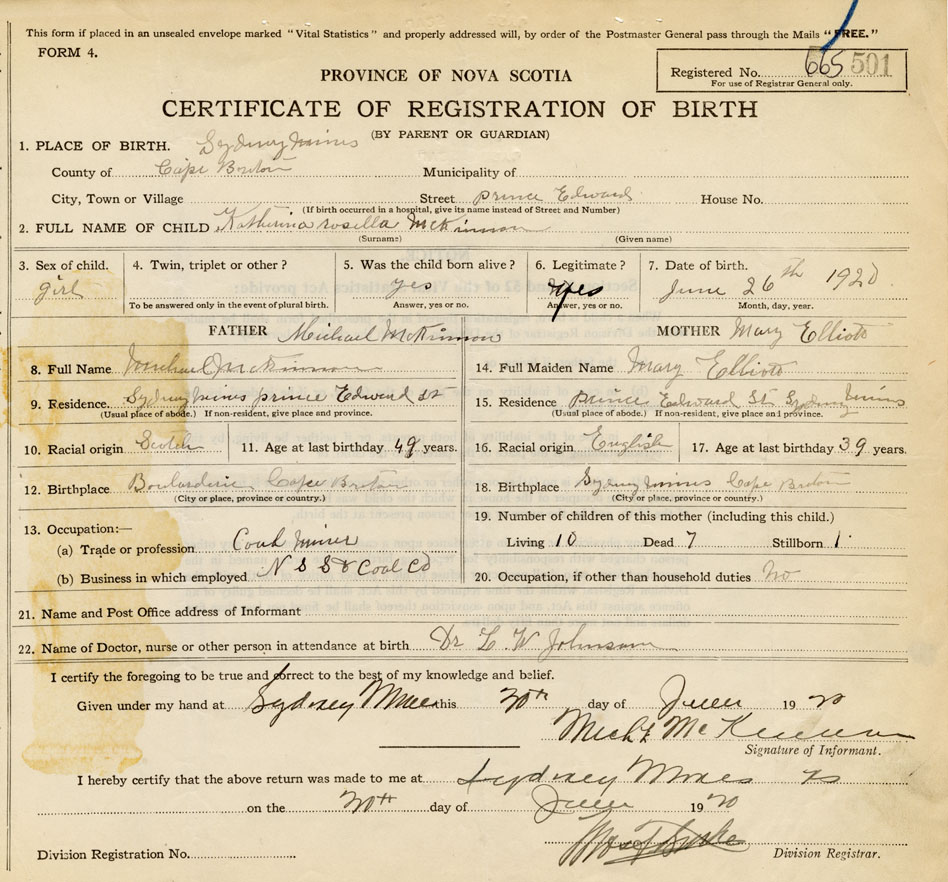 This form if placed in an unsealed envelope marked "Vital Statistics" and properly addressed will, by order of the Postmaster General pass through the Mails "FREE."
FORM 4.
Registered No. 665 501
For use of Registrar General only.
PROVINCE OF NOVA SCOTIA
CERTIFICATE OF REGISTRATION OF BIRTH
(BY PARENT OR GUARDIAN)
1. PLACE OF BIRTH. Sydney mines
County of Cape Breton Municipality of
City, Town or Village Street prince Edward House No.
(If birth occurred in a hospital, give its name instead of Street and Number)
2. FULL NAME OF CHILD Katherina rosella McKinnon
(Surname) (Given name)
3. Sex of child. 4. Twin, triplet or other ? 5. Was the child born alive ? 6. Legitimate ? 7. Date of birth.
girl yes yes June 26th 1920
To be answered only in the event of plural birth. Answer, yes or no. Answer, yes or no. Month, day, year.
FATHER Michael McKinnon MOTHER Mary Elliott
8. Full Name Michael J McKinnon 14. Full Maiden Name Mary Elliott
9. Residence. Sydney mines prince Edward st 15. Residence prince Edward St Sydney mines
(Usual place of abode.) If non-resident, give place and province. (Usual place of abode.) If non-resident, give place and province.
10. Racial origin Scotch 11. Age at last birthday 49 years. 16. Racial origin English 17. Age at last birthday 39 years.
12. Birthplace Boularderie Cape Breton 18. Birthplace Sydney mines Cape Breton
(City or place, province or country.) (City or place, province or country.)
13. Occupation:— 19. Number of children of this mother (including this child.)
(a) Trade or profession Coal miner Living 10 Dead 7 Stillborn 1
(b) Business in which employed N S S & Coal Co 20. Occupation, if other than household duties No
21. Name and Post Office address of Informant
22. Name of Doctor, nurse or other person in attendance at birth Dr L. W Johnson
I certify the foregoing to be true and correct to the best of my knowledge and belief.
Given under my hand at Sydney Mines this 30th day of June 1920
Michl McKinnon
Signature of Informant.
I hereby certify that the above return was made to me at Sydney Mines
on the 30th day of June 1920
Division Registration No. Division Registrar.